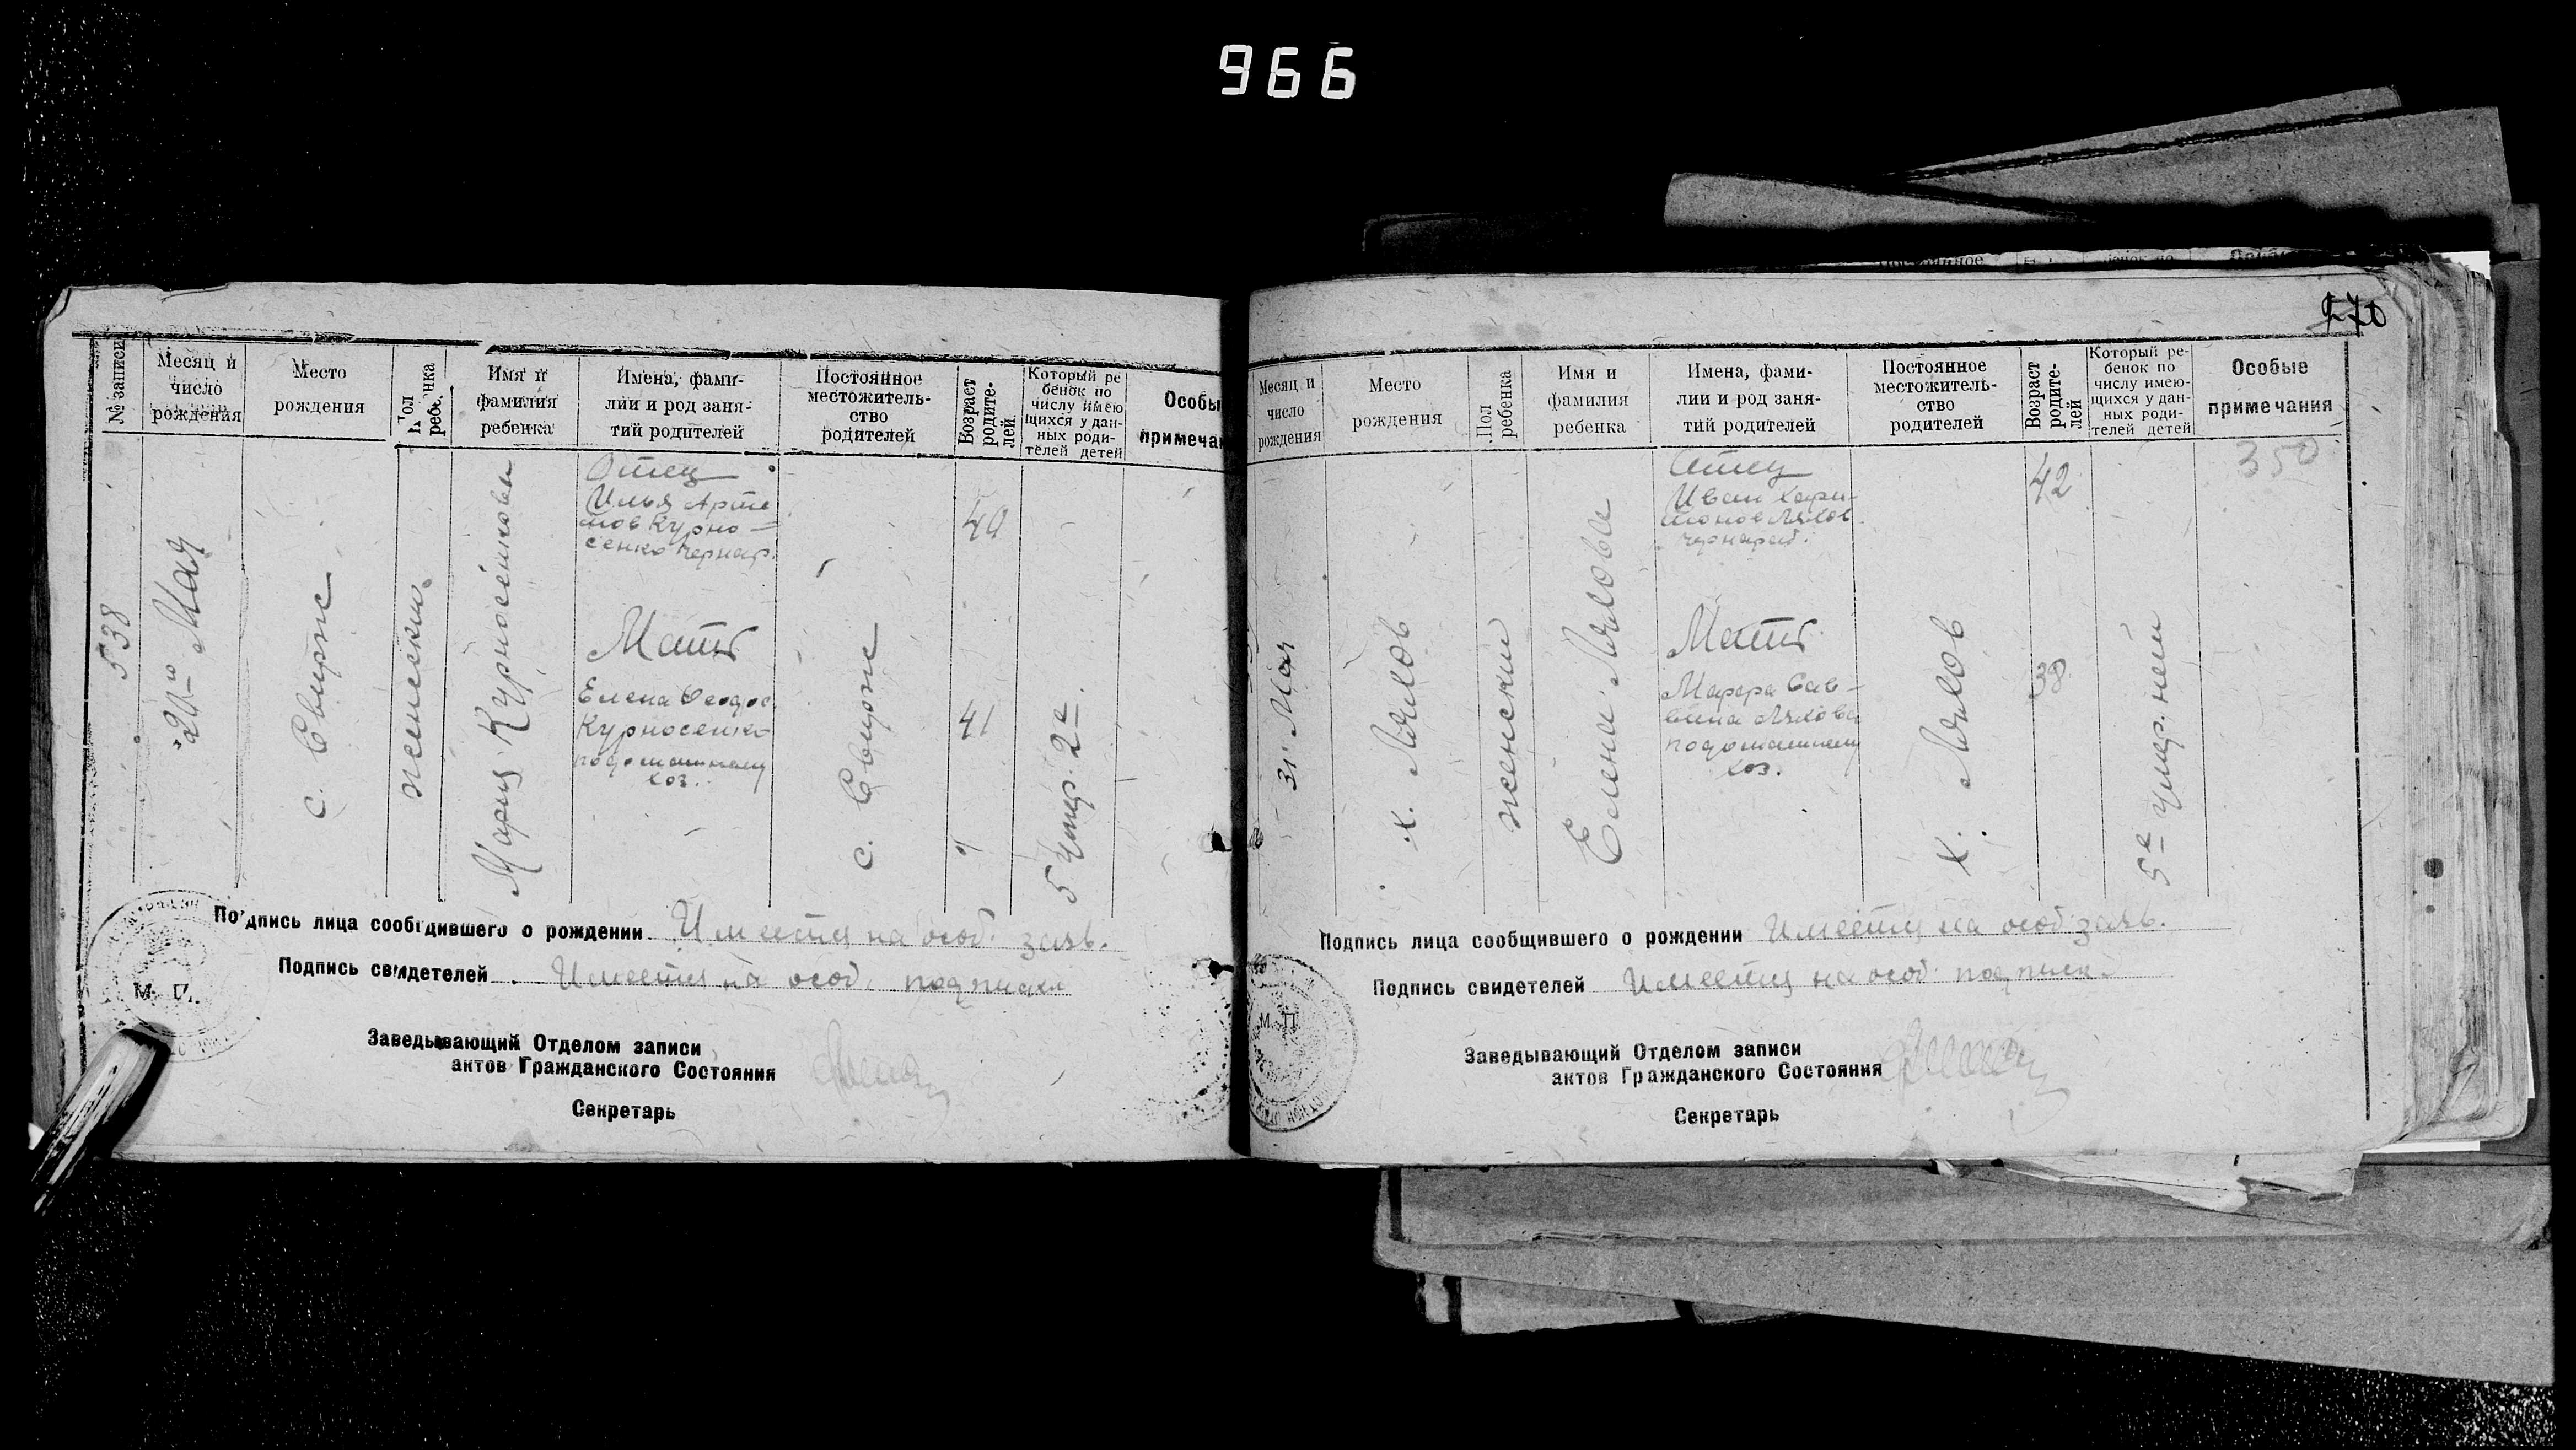 966
№ записи
Месяц и
число
рождения
Место
рождения
Пол
ребенка
Имя и
фамилия
ребенка
Имена, фами-
лии и род заня-
тий родителей
Постоянное
местожитель-
ство
родителей
Возраст
родите-
лей
Который ре
бенок по
числу имею
щихся у дан-
ных роди-
телей детей
Особы
примечан
538
Мая
с. Свирж
женский
Мария Курносенкова
Отец
Илья Арте
мов Курно-
сенко чернор.
Мать
Елена Феодос.
Курносенко
по домашнему
хоз.
с. Свирж
40
41
5 умер. 2е
Подпись лица сообщившего о рождении Имеется на особ. заяв.
Подпись свидетелей Имеется на особ. подписке
М. П.
Заведывающий Отделом записи
актов Гражданского Состояния
Секретарь
270
Месяц и
число
рождения
Место
рождения
Пол
ребенка
Имя и
фамилия
ребенка
Имена, фами-
лии и род заня-
тий родителей
Постоянное
местожитель-
ство
родителей
Возраст
родите-
лей
Который ре-
бенок по
числу имею-
щихся у дан-
ных роди-
телей детей
Особые
примечания
350
31 Мая
х. Ляхов
женский
Елена Ляхова
Отец
Иван Хари-
тонов Ляхов
чернораб.
Мать
Марфа Сав-
вина Ляхова
по домашнему
хоз.
х. Ляхов
42
38
5е умер. нет
Подпись лица сообщившего о рождении Имеется на особ заяв.
Подпись свидетелей Имеется на особ. подписк.
М. П.
Заведывающий Отделом записи
актов Гражданского Состояния
Секретарь